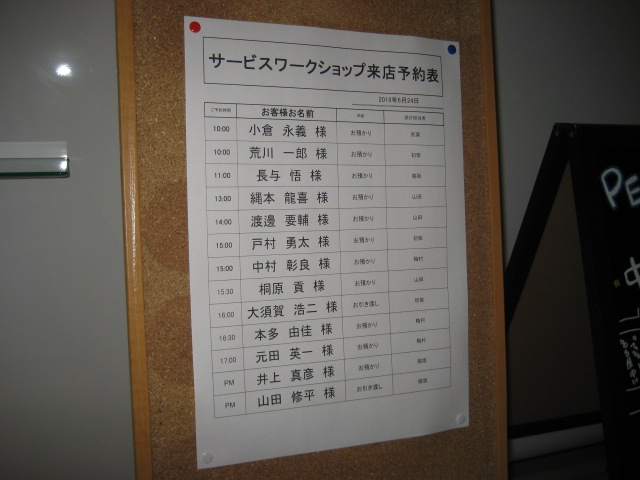 サービスワークショップ来店予約表
2018年6月24日
ご予約時間 お客様お名前 内容 受付担当者
10:00 小倉 永義 様 お預かり
10:00 荒川 一郎 様 お預かり
11:00 長与 悟 様 お預かり
13:00 縄本 龍喜 様 お預かり 山田
14:00 渡邊 要輔 様 お預かり 山田
15:00 戸村 勇太 様 お預かり
15:00 中村 彰良 様 お預かり
15:30 桐原 貢 様 お預かり 山田
16:00 大須賀 浩二 様 お引き渡し
16:30 本多 由佳 様 お預かり
17:00 元田 英一 様 お預かり
PM 井上 真彦 様 お預かり
PM 山田 修平 様 お引き渡し
PE
中